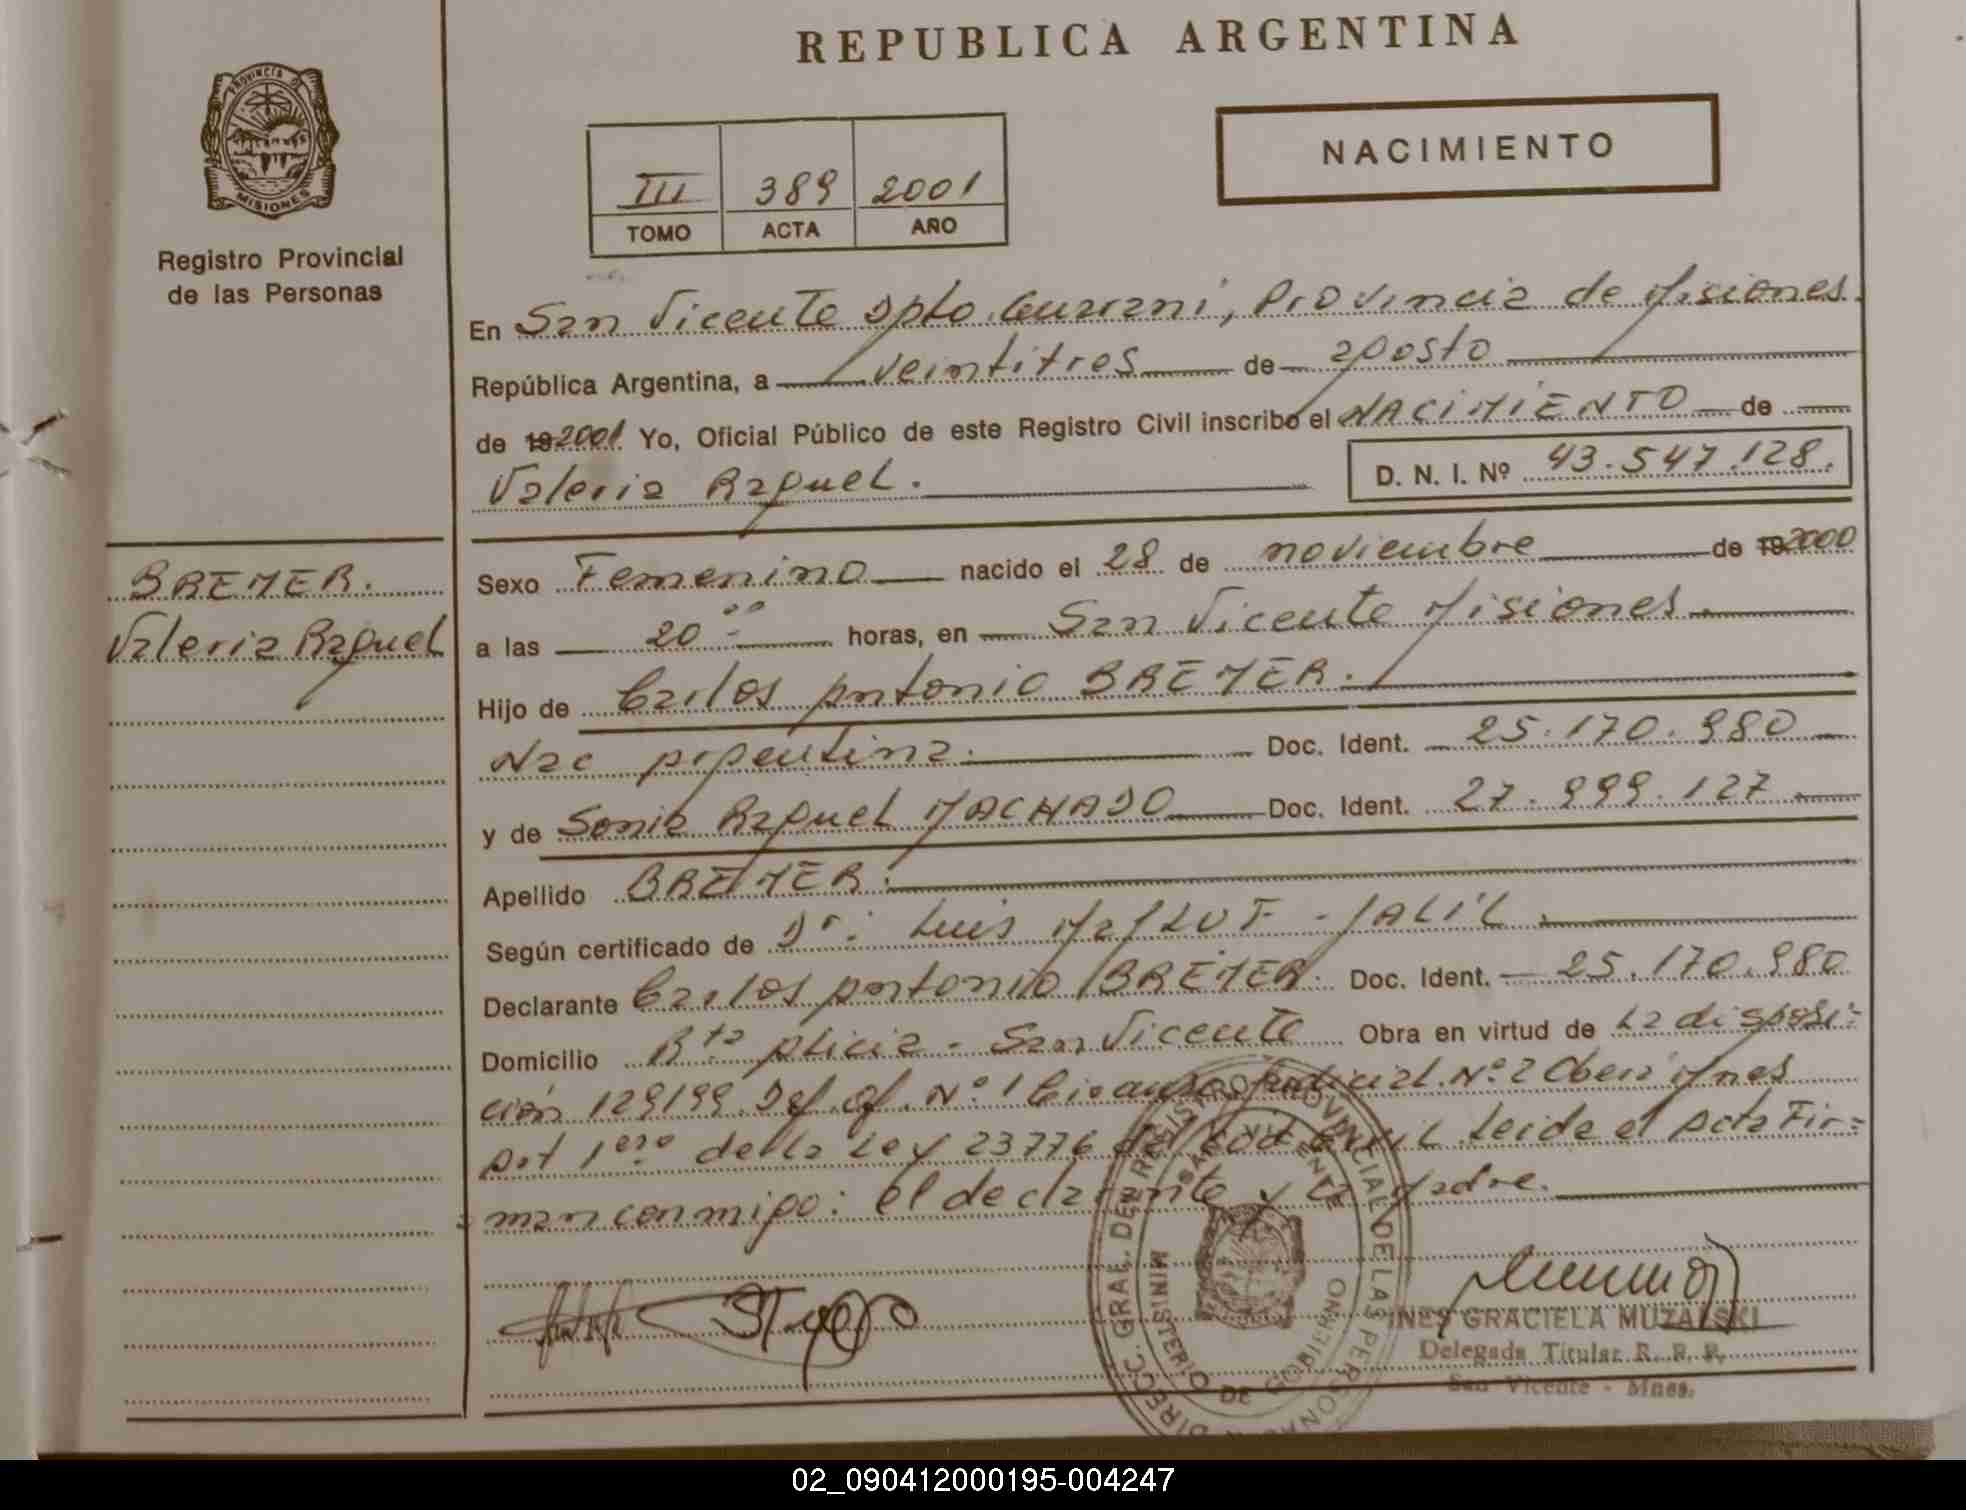 REPUBLICA ARGENTINA
PROVINCIA DE
MISIONES
Registro Provincial
de las Personas
NACIMIENTO
III 389 2001
TOMO ACTA AÑO
En San Vicente Dpto. Guarani, Provincia de Misiones.
República Argentina, a veintitres de agosto
de 19 2001 Yo, Oficial Público de este Registro Civil inscribo el NACIMIENTO de
Valeria Raquel.
D. N. I. Nº 43.547.128.
BREMER.
Valeria Raquel
Sexo Femenino nacido el 28 de noviembre de 19 2000
a las 20 horas, en San Vicente Misiones.
Hijo de Carlos Antonio BREMER.
Nac Argentina. Doc. Ident. 25.170.980
y de Sonia Raquel MACHADO Doc. Ident. 27.999.127
Apellido BREMER.
Según certificado de Dr: Luis JALIL.
Declarante Carlos Antonio BREMER. Doc. Ident. 25.170.980
Domicilio Rta Alicia - San Vicente Obra en virtud de La disposi=
ción 129199 Def. of. Nº 1 Judicial Nº 2 Mnes
Art 1ero de la Ley 23776 del cod civil. Leida el Acta Fir=
=man conmigo: el declarante y la Madre.
DIREC. GRAL. DEL REGISTRO PROVINCIAL DE LAS PERSONAS
SAN VICENTE
MINISTERIO DE GOBIERNO
INES GRACIELA MUZALSKI
Delegada Titular R. P. P.
San Vicente - Mnes.
02_090412000195-004247